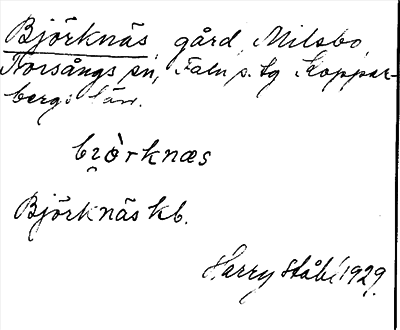 Björknäs, gård, Milsbo,
Norsångs sn, Falu s. tg Koppar-
bergs län.
bɿörknæs
Björknäs kb.
Harry Ståhl 1929.